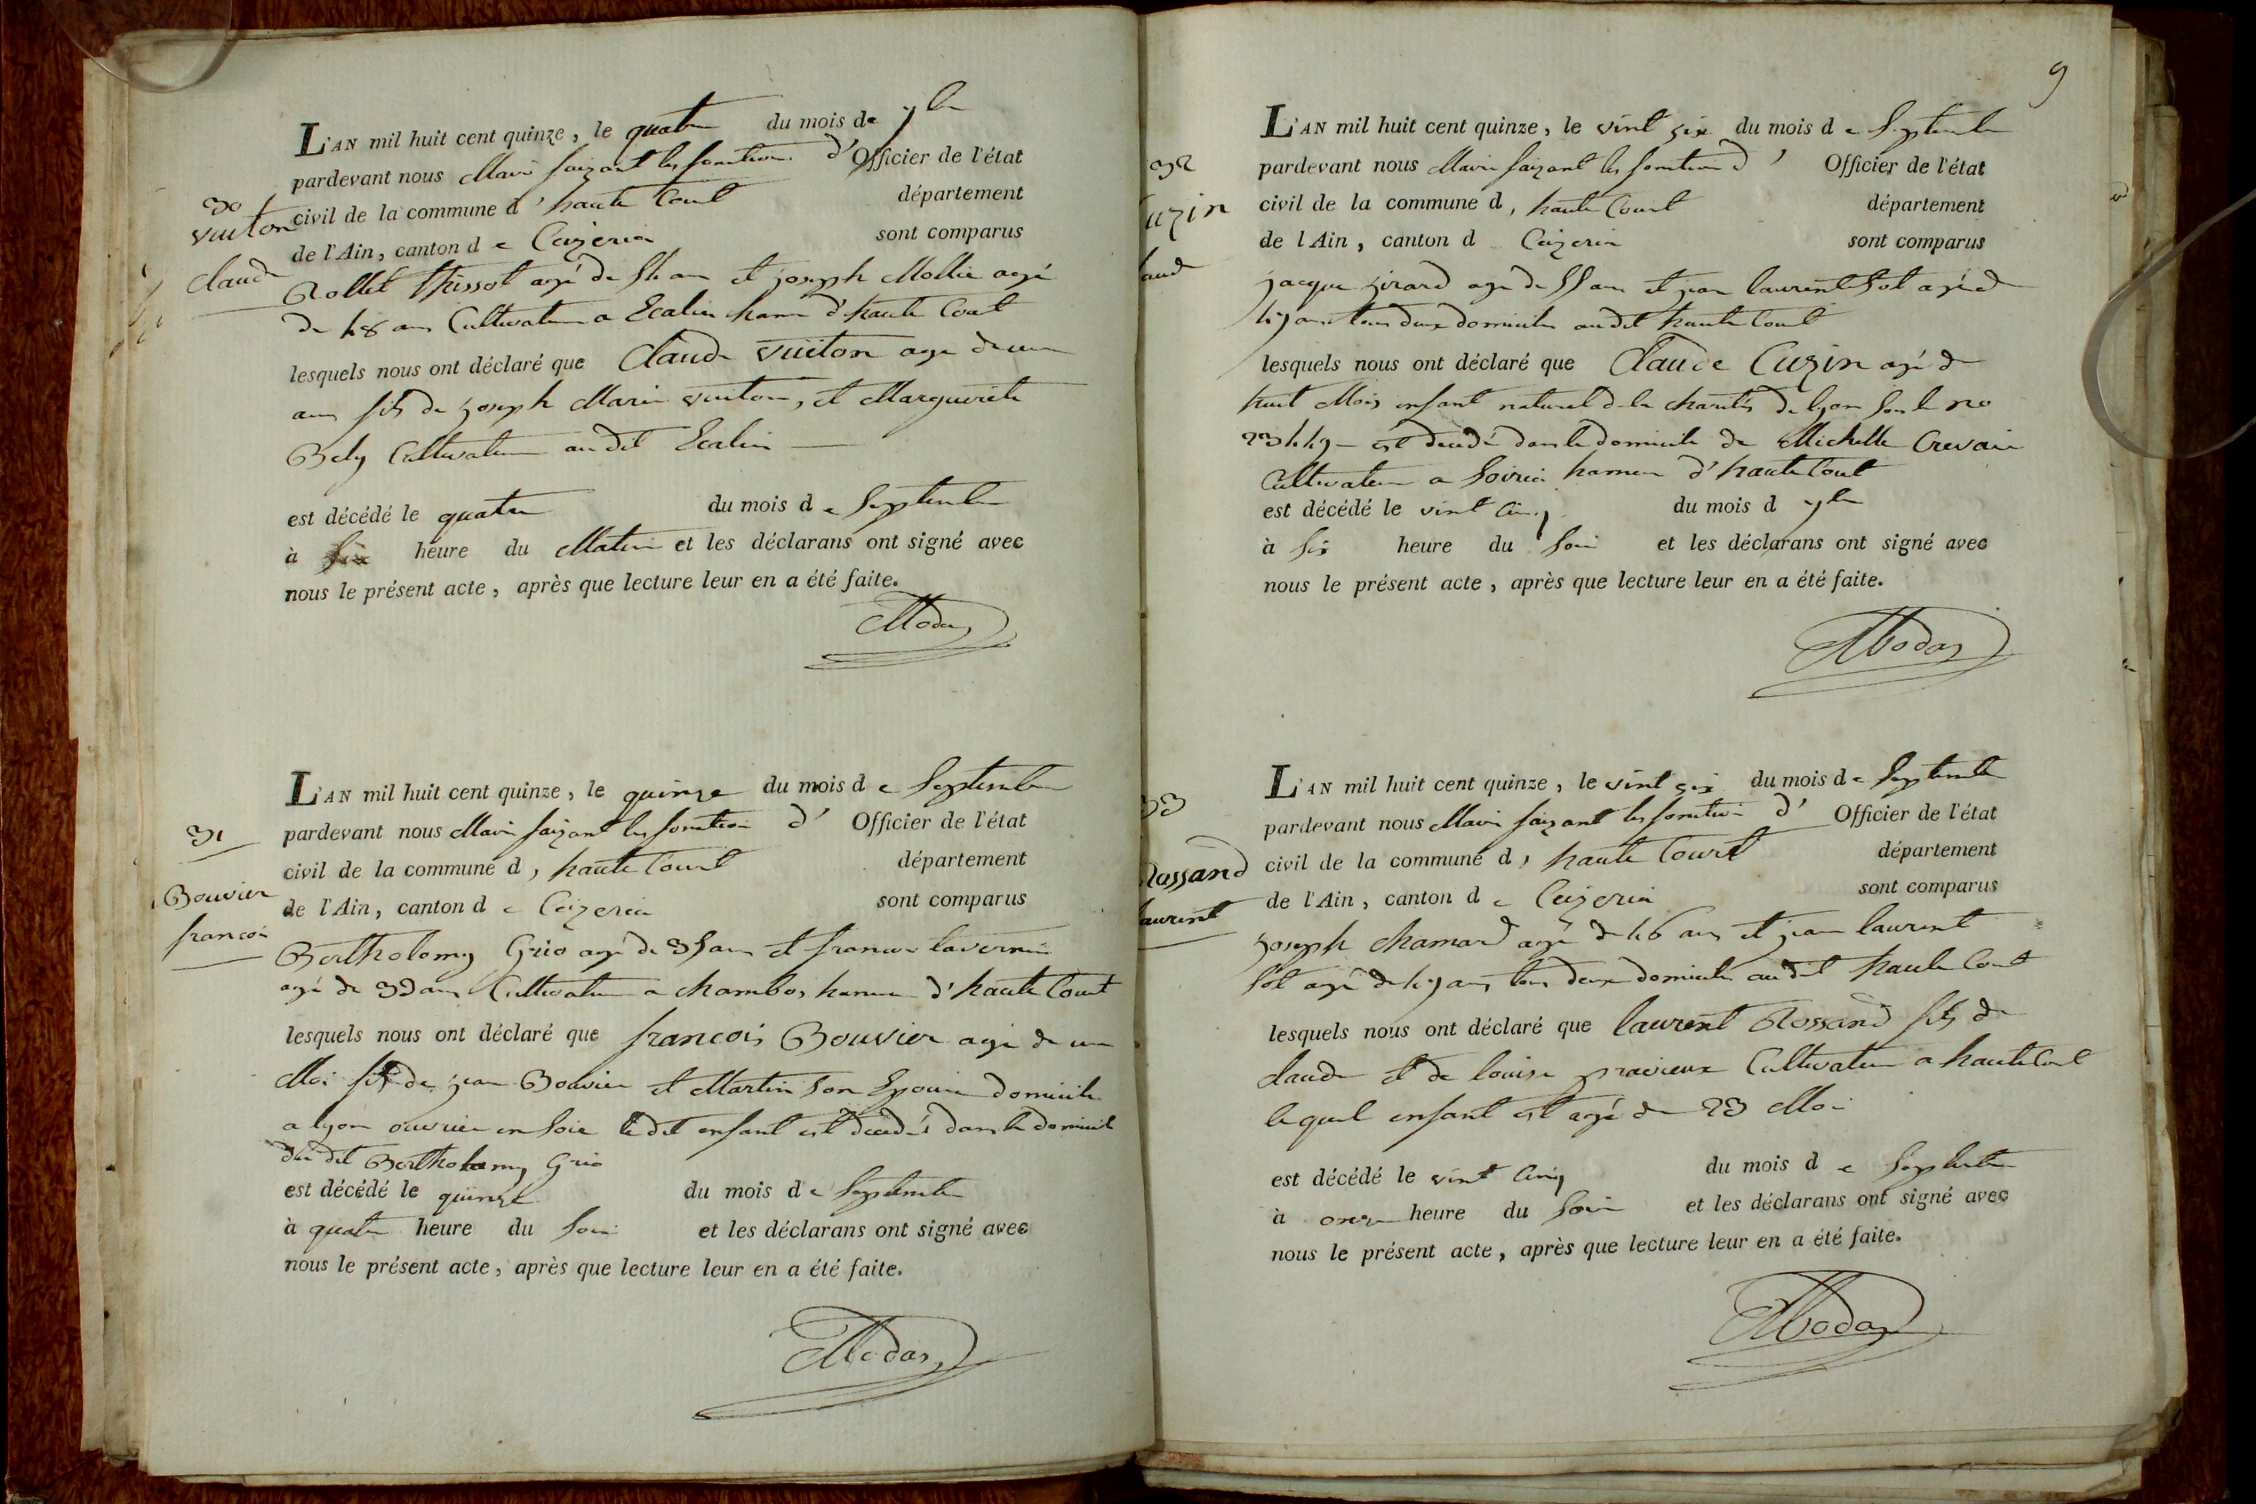 L'AN mil huit cent quinze, le quatre du mois de 7bre
pardevant nous Maire faizant les fonctions d'Officier de l'état
civil de la commune d'haute Court département
de l'Ain, canton de Ceizeria sont comparus
30
vuiton
claude
Rollet agé de 54 ans et joseph Mollie agé
de 48 ans Cultivateur a hameau d'haute Court
lesquels nous ont déclaré que Claude vuiton agé de un
ans fils de joseph Marie vuiton, et Marguerite
Bely Cultivateur au dit
est décédé le quatre du mois de Septembre
à six heure du Matin et les déclarans ont signé avec
nous le présent acte, après que lecture leur en a été faite.
Modas
L'AN mil huit cent quinze, le quinze du mois de Septembre
pardevant nous Maire faizant les fonction d' Officier de l'état
civil de la commune d, haute Court département
de l'Ain, canton de Ceizeria sont comparus
31
Bouvier
francois
Bertholomy Grio agé de 35 ans et francois tavernier
agé de ans Cultivateur a chambos hameau d'haute Court
lesquels nous ont déclaré que francois Bouvier agé de un
Moi fils de jean Bouvier et Martin son Epouse domicile
a lyon ouvrier en soie le dit enfant est décédé dans le domicile
du dit Bertholomy Grio
est décédé le quinze du mois de Septembre
à quatre heure du soir et les déclarans ont signé avec
nous le présent acte, après que lecture leur en a été faite.
Modas
9
L'AN mil huit cent quinze, le vint six du mois de Septembre
pardevant nous Maire faizant les fonction d' Officier de l'état
civil de la commune d, haute Court département
de l'Ain, canton d Ceizeria sont comparus
32
Cuzin
laude
jacque jirard agé de 55 ans et jean laurent Sot agé de
47 ans tous deux domicilies au dit haute Court
lesquels nous ont déclaré que Claude Cuzin agé de
huit Mois enfant naturel de la charité de lyon sous le no
23447 est décédé dans le domicile de Michelle Crevair
Cultivateur a Soiria hameau d'haute Court
est décédé le vint Cinq du mois d 7bre
à six heure du soir et les déclarans ont signé avec
nous le présent acte, après que lecture leur en a été faite.
Modas
L'AN mil huit cent quinze, le vint six du mois de Septembre
pardevant nous Maire faizant les fonction d' Officier de l'état
civil de la commune d, haute Court département
de l'Ain, canton de Ceizeria sont comparus
33
Rossand
laurent
joseph chamard agé de 46 ans et jean laurent
Sot agé de 47 ans tous deux domicilie au dit haute Court
lesquels nous ont déclaré que laurent Rossand fils de
claude et de louise pravieux Cultivateur a haute Court
le quel enfant est agé de 23 Moi
est décédé le vint Cinq du mois de Septembre
à onze heure du soir et les déclarans ont signé avec
nous le présent acte, après que lecture leur en a été faite.
Modas